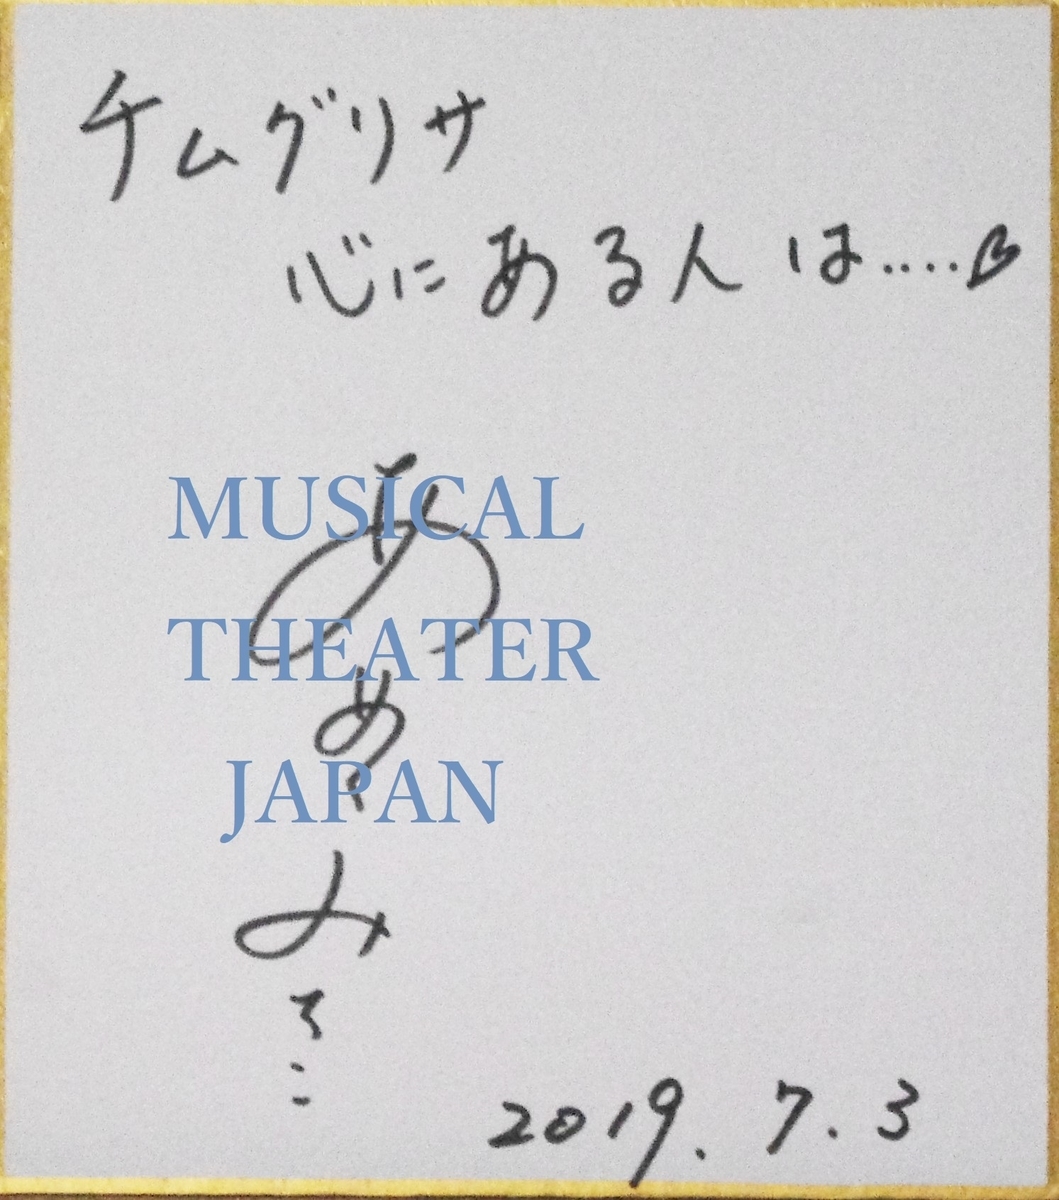 チムグリサ
心にある人は....♡
あめくみちこ
MUSICAL
THEATER
JAPAN
2019.7.3